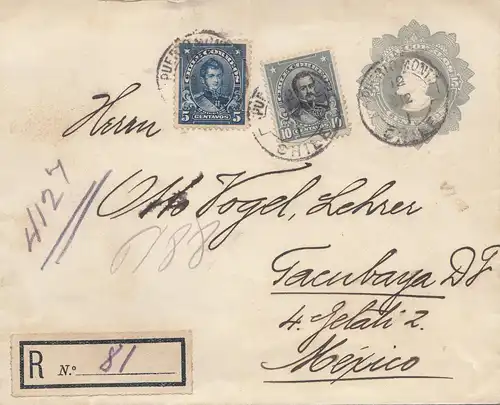 CHILE CORREOS
5 CENTAVOS 5
10 CENTAVOS 10
PUERTO MONTT
CHILE
Herrn
Otto Vogel, Lehrer
Tacubaya DF
4. Gelati 2.
México
4127
188
R N.º 81